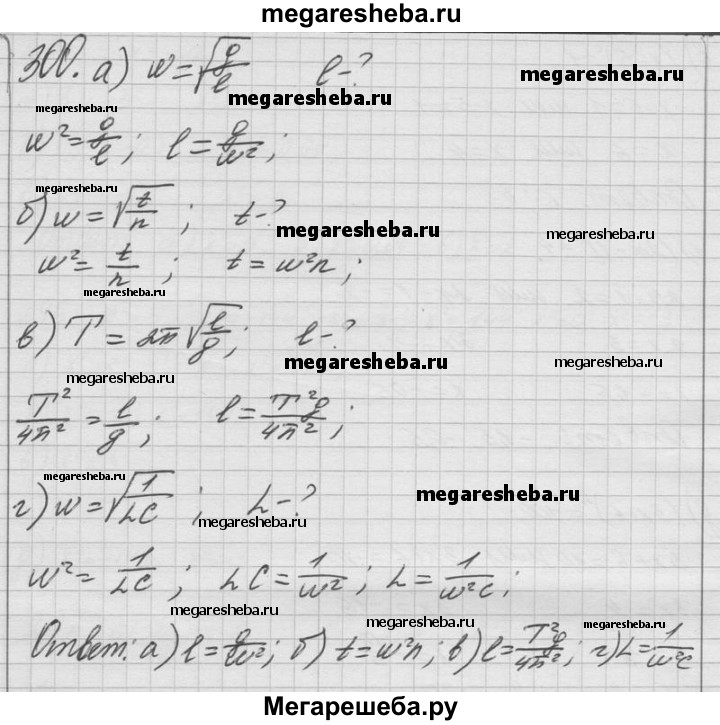 megaresheba.ru
300. а) w = √(g/l)   l - ?   megaresheba.ru
megaresheba.ru   megaresheba.ru
w² = g/l ;   l = g/w² ;
megaresheba.ru
б) w = √(t/n) ;   t - ?   megaresheba.ru   megaresheba.ru
w² = t/n ;   t = w²n ;
megaresheba.ru
в) T = 2π√(l/g) ;   l - ?
megaresheba.ru   megaresheba.ru   megaresheba.ru
T²/4π² = l/g ;   l = T²g/4π² ;
megaresheba.ru
г) w = √(1/LC) ;   L - ?   megaresheba.ru
megaresheba.ru
w² = 1/LC ;   LC = 1/w² ;   L = 1/w²C ;
megaresheba.ru   megaresheba.ru   megaresheba.ru
Ответ: а) l = g/w² ; б) t = w²n ; в) l = T²g/4π² ; г) L = 1/w²C
megaresheba.ru   megaresheba.ru
Мегарешеба.ру